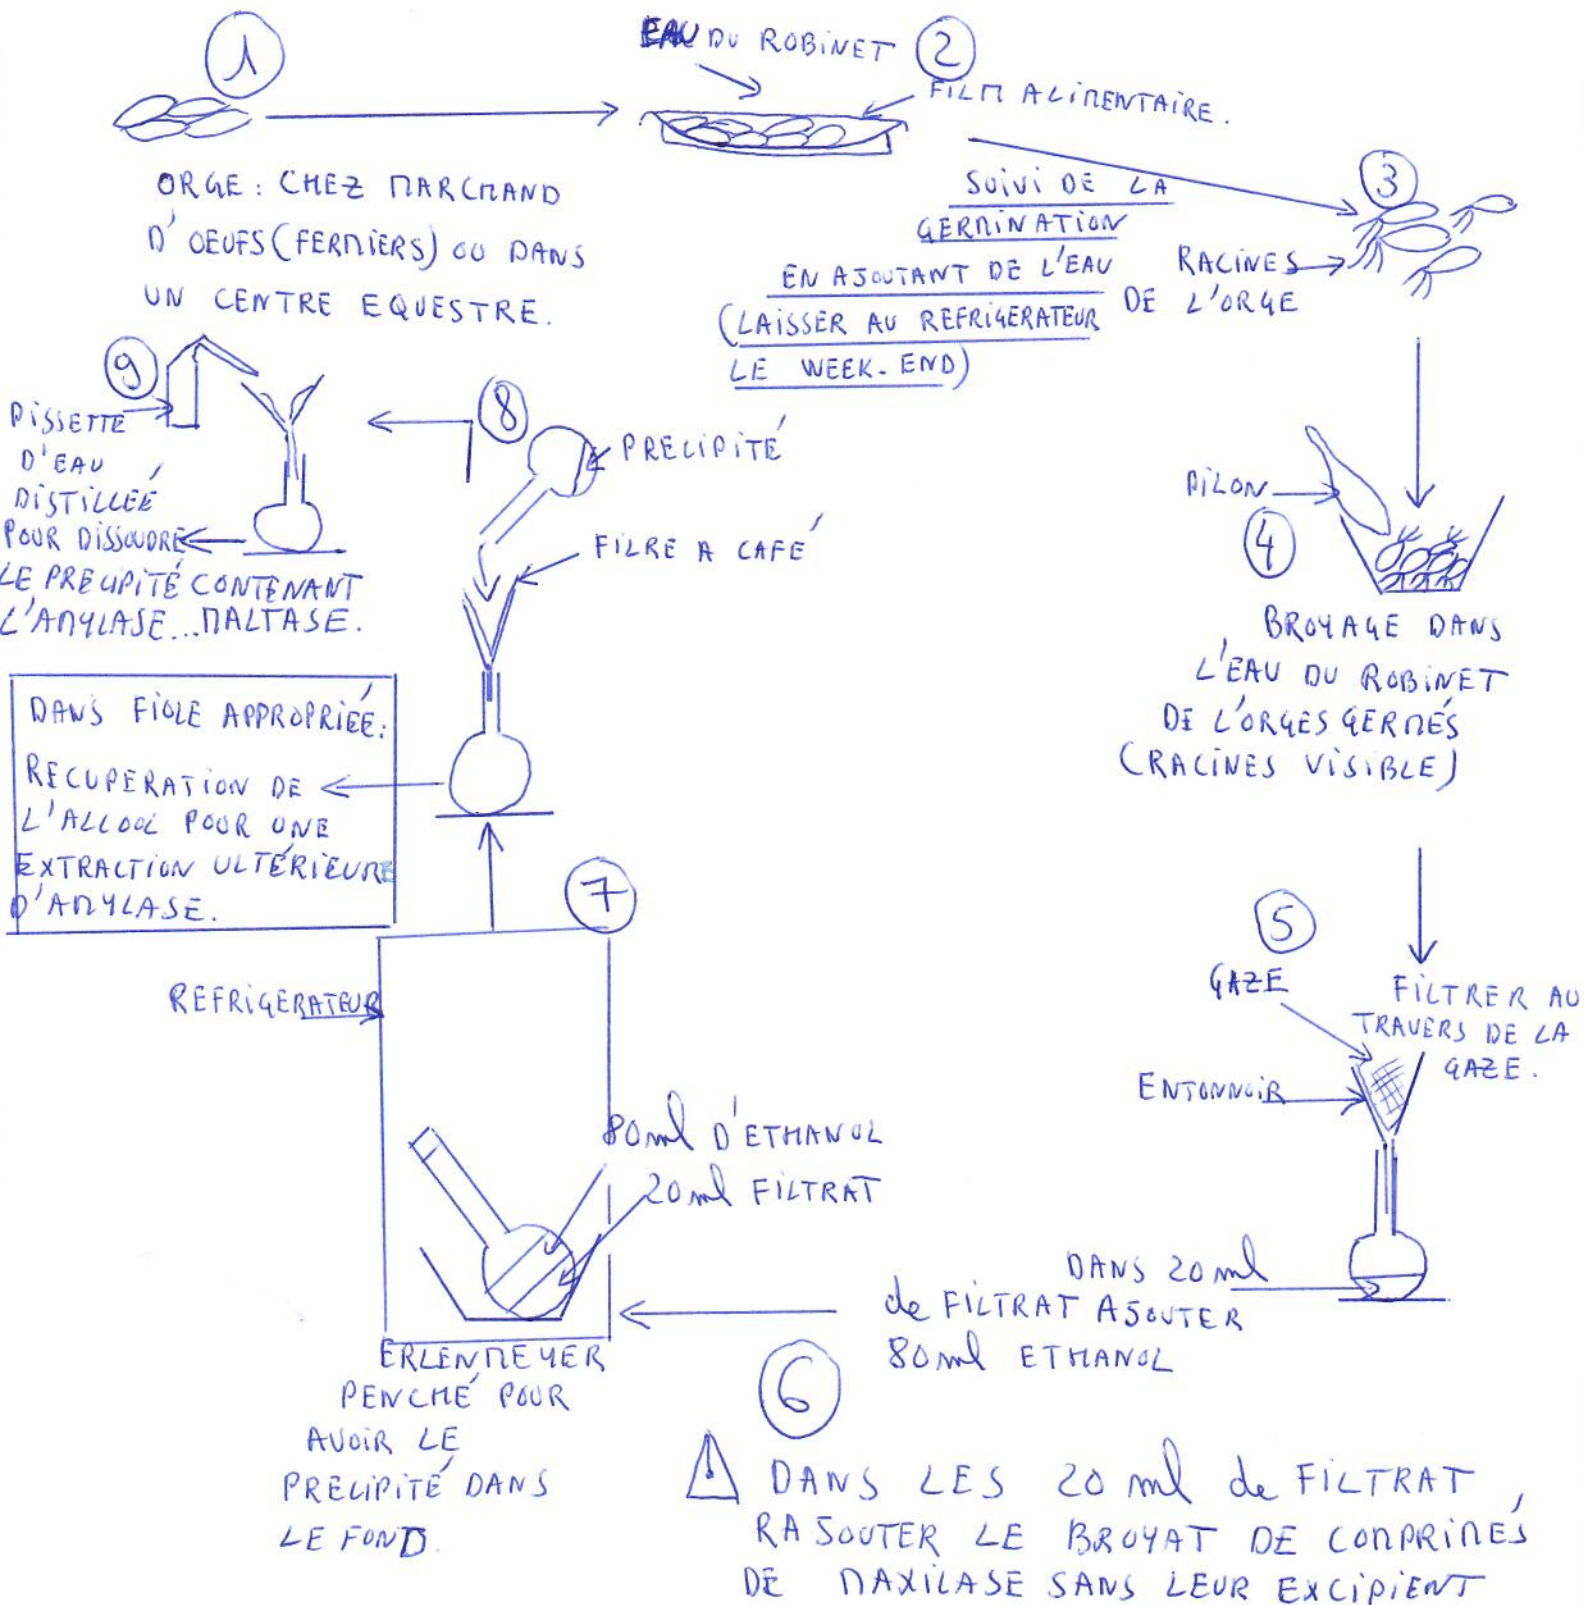 1
ORGE : CHEZ MARCHAND
D'OEUFS (FERMIERS) OU DANS
UN CENTRE EQUESTRE.
EAU DU ROBINET
2
FILM ALIMENTAIRE.
SUIVI DE LA
GERMINATION
EN AJOUTANT DE L'EAU
(LAISSER AU REFRIGERATEUR
LE WEEK-END)
3
RACINES
DE L'ORGE
PILON
4
BROYAGE DANS
L'EAU DU ROBINET
DE L'ORGES GERMÉS
(RACINES VISIBLE)
5
GAZE
FILTRER AU
TRAVERS DE LA
GAZE.
ENTONNOIR
DANS 20 ml
de FILTRAT AJOUTER
80 ml ETHANOL
6
! DANS LES 20 ml de FILTRAT
RAJOUTER LE BROYAT DE COMPRIMÉS
DE MAXILASE SANS LEUR EXCIPIENT
7
REFRIGERATEUR
80 ml D'ETHANOL
20 ml FILTRAT
ERLENMEYER
PENCHÉ POUR
AVOIR LE
PRECIPITÉ DANS
LE FOND.
8
PRECIPITÉ
FILRE A CAFÉ
DANS FIOLE APPROPRIÉE:
RECUPERATION DE
L'ALCOOL POUR UNE
EXTRACTION ULTÉRIEURE
D'AMYLASE.
9
PISSETTE
D'EAU
DISTILLEÉ
POUR DISSOUDRE
LE PRECIPITÉ CONTENANT
L'AMYLASE...MALTASE.